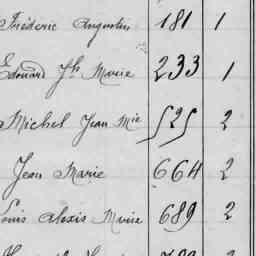 Fréderic Augustin 181 1
Edouard Jh Marie 233 1
Michel Jean Mie 525 2
Jean Marie 664 2
Louis Alexis Marie 689 2